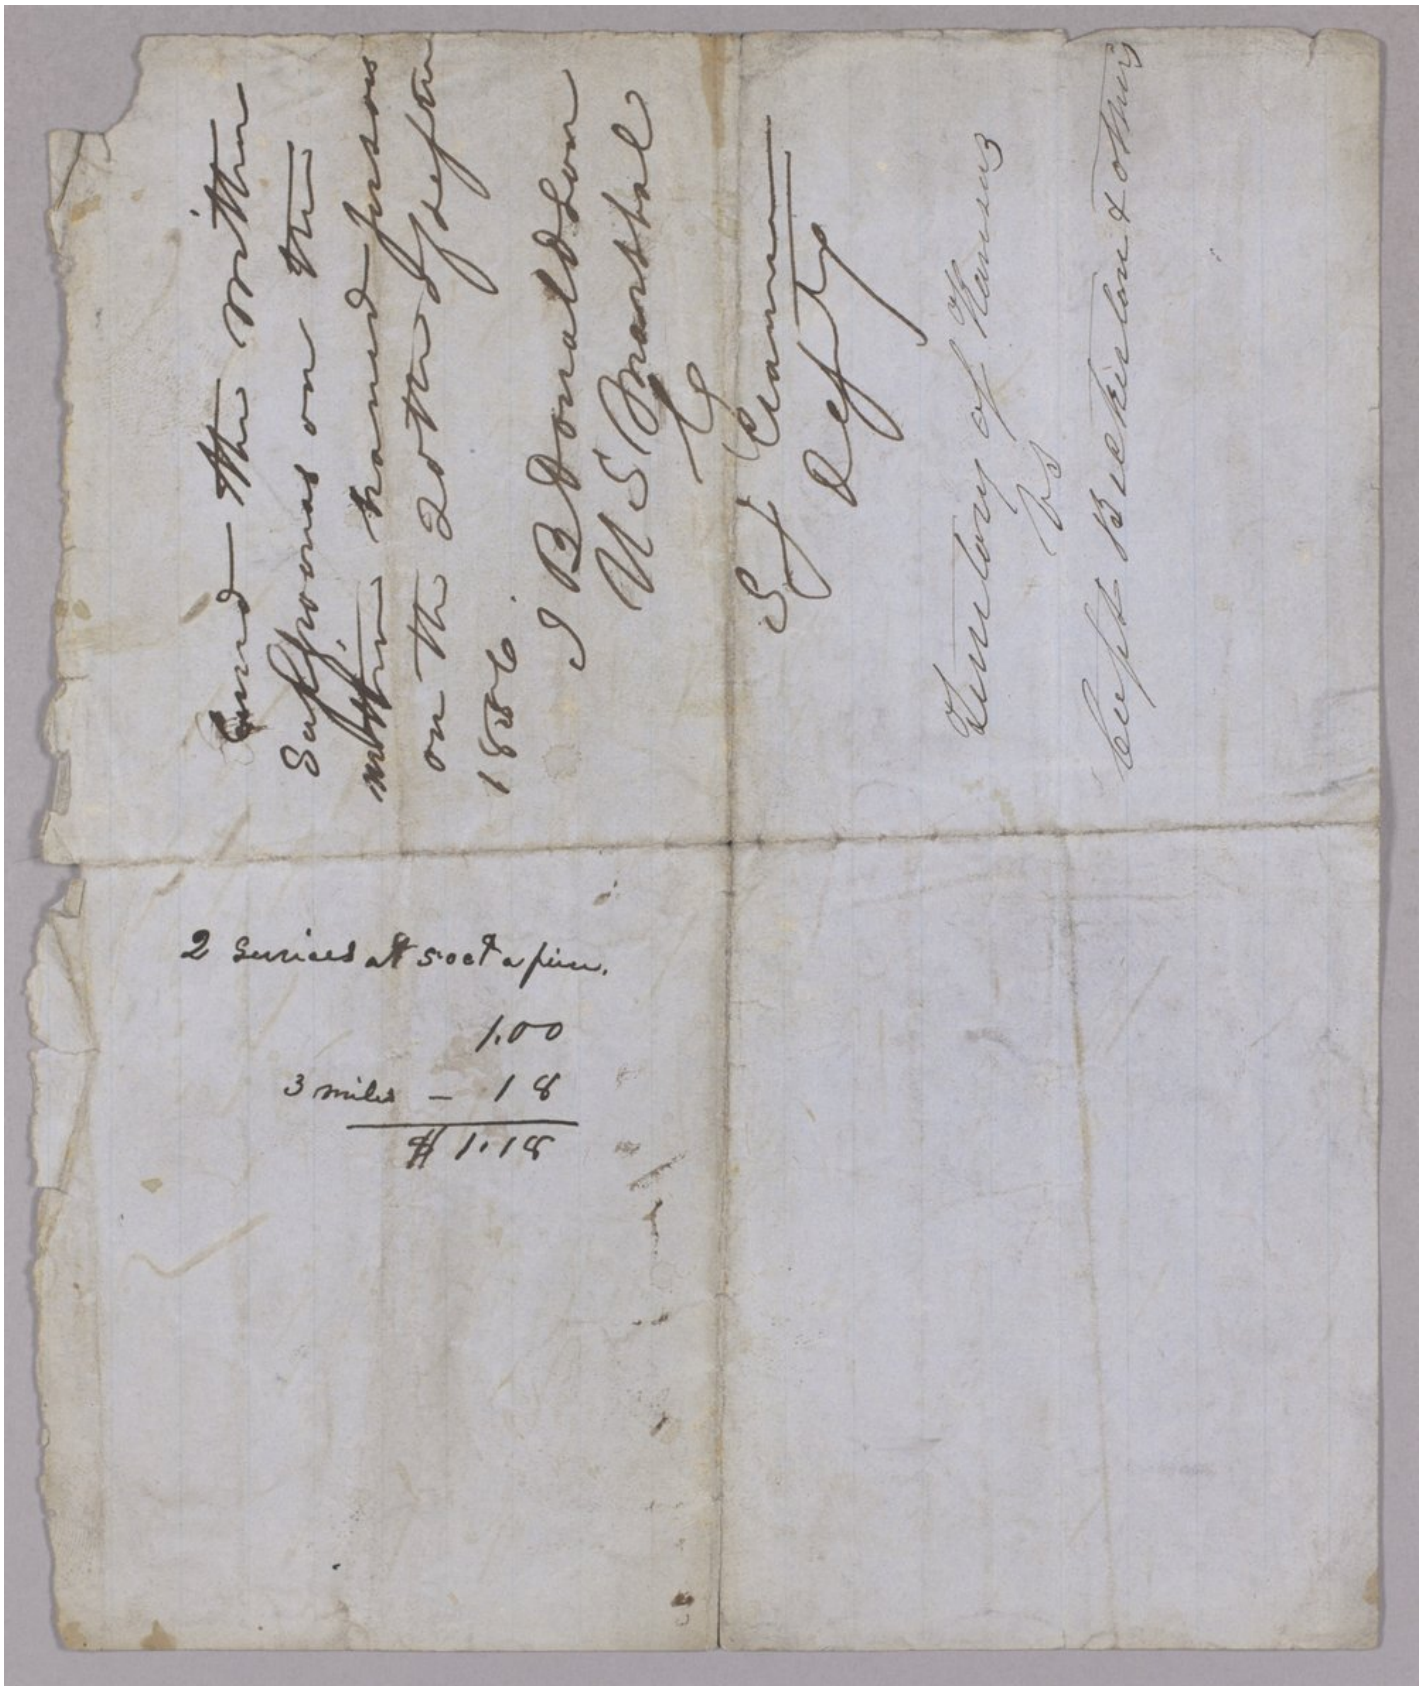 the within
Suhpoonas on the
within named persons
on the 20th of Septem
1856.
I B Donaldson
U S Marshal
S J
Depty
Territory of Kansas
vs
Capt Bickerton & others
2 Services at 50ct a piece.
1.00
3 miles – 18
$ 1.18